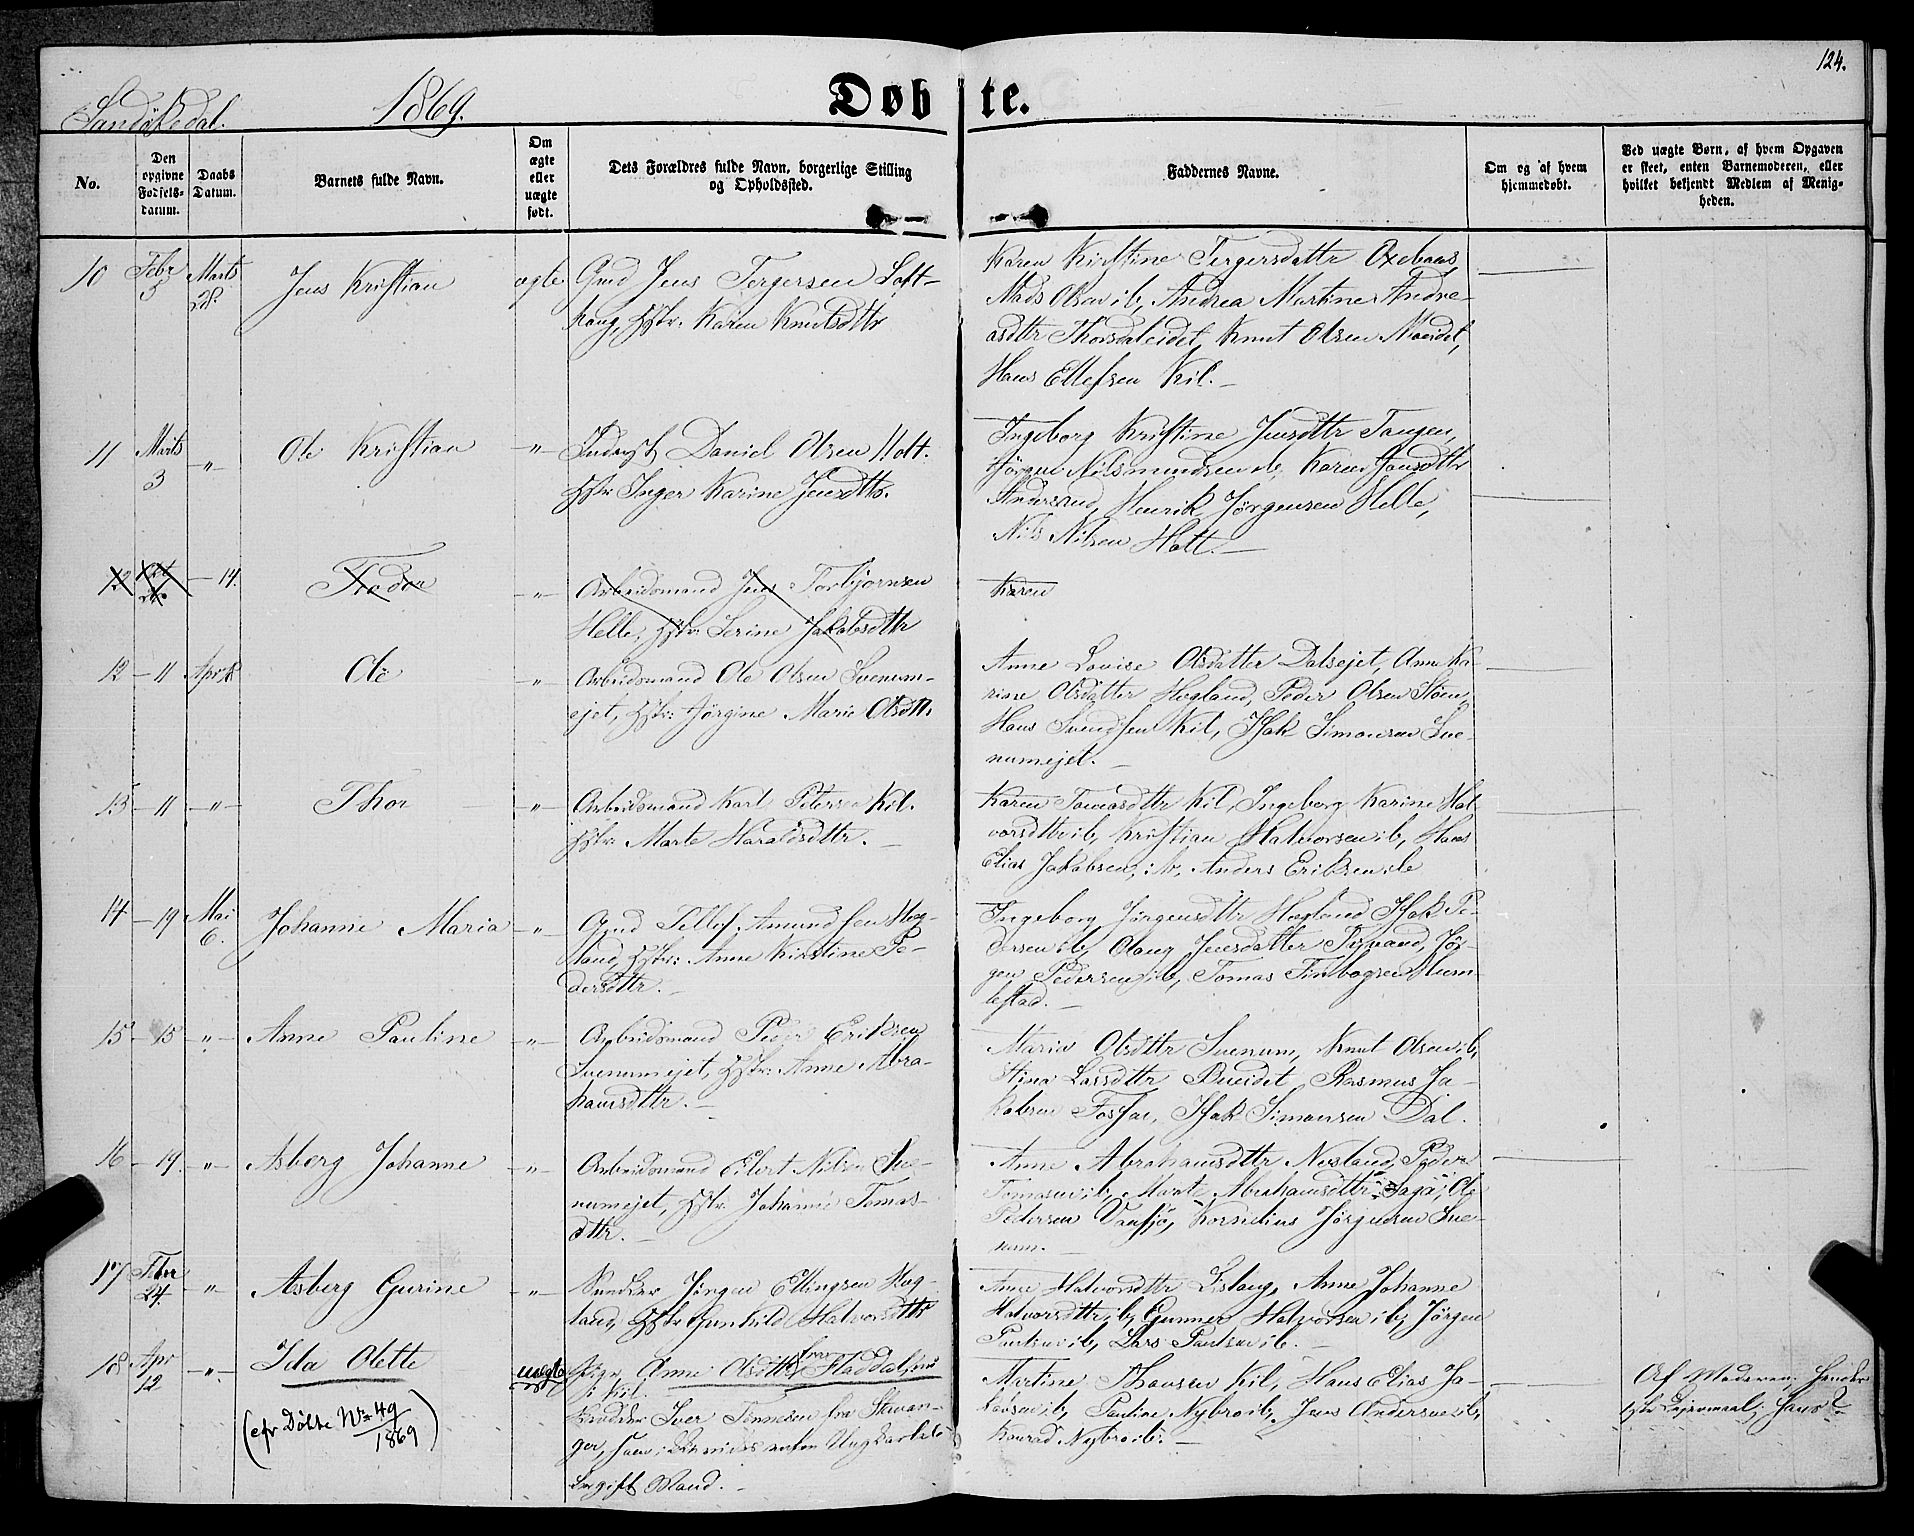 124.
Sandøkedal. 1869. Døbte.
No.
Den opgivne Fødsels-datum.
Daabs Datum.
Barnets fulde Navn.
Om ægte eller uægte født.
Dets Forældres fulde Navn, borgerlige Stilling og Opholdssted.
Faddernes Navne.
Om og af hvem hjemmedøbt.
Ved uægte Børn, af hvem Opgaven er skeet, enten Barnemoderen, eller hvilket bekjendt Medlem af Menigheden.
10 Febr 5 Marts 28. Jens Kristian ægte Gmd Jens Tergersen Loft-
haug, Hstr: Karen Knutsdttr
Karen Kirstine Tergersdattr Oxebaas
Mads Olsen ib, Andrea Martine Andre-
asdttr Thorsdaleidet, Knut Olsen
Hans Ellefsen Kil. —
11 Marts 3 " Ole Kristian " Daniel Olsen Holt.
Hstr Inger Karine Jensdttr.
Ingeborg Kristine Jensdttr Tangen,
Jørgen ib, Karen Jensdttr
Henrik Jørgensen Helle,
Nils Nilsen Holt. —
12 — 14. Fredor " Arbeidsmand Jens Torbjørnsen
Helle, Hstr: Serine Jakobsdttr
Karen
12 — 11 Apr 18 Ole " Arbeidsmand Ole Olsen Svenum-
ejet, Hstr: Jørgine Marie Olsdttr
Anne Lovise Olsdatter Dalsejet, Anne Ka-
rine Olsdatter Hogland, Peder Olsen Støen,
Hans Svendsen Kil, Isak Simonsen Sve-
numejet. —
13 — 11 — " — Thor " Arbeidsmand Karl Petersen Kil.
Hstr: Marte Haraldsdttr. —
Karen Tomasdttr Kil, Ingeborg Karine Hal-
vorsdttr ib, Kristian Halvorsen ib, Hans
Elias Jakobsen, ib, Anders Eriksen ib
14 — 19 Mai 6. Johanne Maria — " — Gmd Tellef Amundsen Hog-
land, Hstr: Anne Kirstine Pe-
dersdttr. —
Ingeborg Jørgensdttr Hogland, Isak Pe-
dersen ib, Olaug Jensdatter Tisvand, Jør-
gen Pedersen ib, Tomas Finbogsen Hum-
lestad. —
15 — 15 " — Anne Pauline — " — Arbeidsmand Peder Eriksen
Svenumejet, Hstr: Anne Abra-
hamsdttr. —
Maria Olsdttr Svenum, Knut Olsen ib,
Stina Larsdttr Bueidet, Rasmus Ja-
kobsen Fossar, Isak Simonsen Dal.
16 — 19. — " — Asberg Johanne — " — Arbeidsmand Eilert Nilsen Sve-
numejet, Hstr: Johanne Tomas-
dttr. —
Anne Abrahamsdttr Nesland, Peder
Tomasen ib, Marte Abrahamsdttr Saga, Ole
Pedersen Vansjø, Kornelius Jørgensen Sve-
num. —
17 Febr 24. — " — Asberg Gurine — " — Jørgen Ellingsen Hog-
land, Hstr Gunhild Halvorsdttr
Anne Halvorsdttr Lislaug, Anne Johanne
Halvorsdttr ib, Gunner Halvorsen ib, Jørgen
Paulsen ib, Lars Paulsen ib. —
18 Apr 12 — " — Ida Olette uægte Pige Anne Olsdttr fra Fladdal, nu
i Kil.
Iver Tønnesen fra Stavan-
ger,
Mand. —
Martine Thovsen Kil, Hans Elias Ja-
kobsen ib, Pauline Nybro ib, Jens Andersen ib,
Konrad Nybro ib. —
Af Moderen;
Lejermaal;
(cfr Døbte No 49
1869)